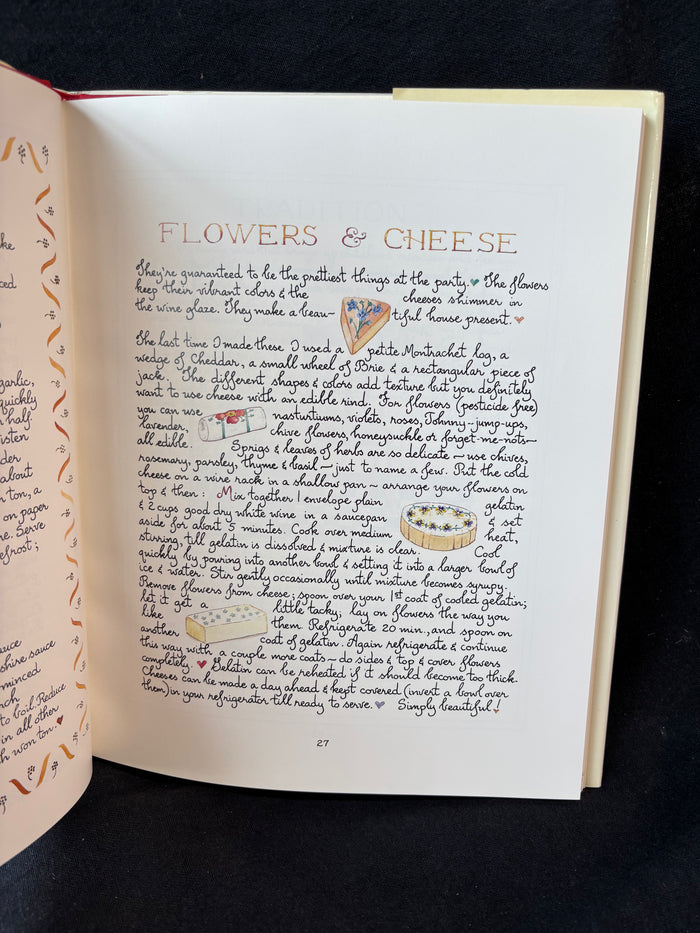 ke
ced
garlic,
quickly
n half.
isten
der
about
n ton, a
on paper
re. Serve
efrost;
auce
shire sauce
minced
nch
to boil. Reduce
in all other
h won ton.
FLOWERS & CHEESE
They're guaranteed to be the prettiest things at the party. The flowers
keep their vibrant colors & the cheeses shimmer in
the wine glaze. They make a beau~ tiful house present.
The last time I made these I used a petite Montrachet log, a
wedge of Cheddar, a small wheel of Brie & a rectangular piece of
jack. The different shapes & colors add texture but you definitely
want to use cheese with an edible rind. For flowers (pesticide free)
you can use nasturtiums, violets, roses, Johnny-jump-ups,
lavender, chive flowers, honeysuckle or forget-me-nots~
all edible. Sprigs & leaves of herbs are so delicate ~ use chives,
rosemary, parsley, thyme & basil ~ just to name a few. Put the cold
cheese on a wire rack in a shallow pan ~ arrange your flowers on
top & then: Mix together 1 envelope plain gelatin
& 2 cups good dry white wine in a saucepan & set
aside for about 5 minutes. Cook over medium heat,
stirring, till gelatin is dissolved & mixture is clear. Cool
quickly by pouring into another bowl & setting it into a larger bowl of
ice & water. Stir gently occasionally until mixture becomes syrupy.
Remove flowers from cheese; spoon over your 1st coat of cooled gelatin;
let it get a little tacky; lay on flowers the way you
like them. Refrigerate 20 min., and spoon on
another coat of gelatin. Again refrigerate & continue
this way with a couple more coats ~ do sides & top & cover flowers
completely. Gelatin can be reheated if it should become too thick.
Cheeses can be made a day ahead & kept covered (invert a bowl over
them) in your refrigerator till ready to serve. Simply beautiful!
27